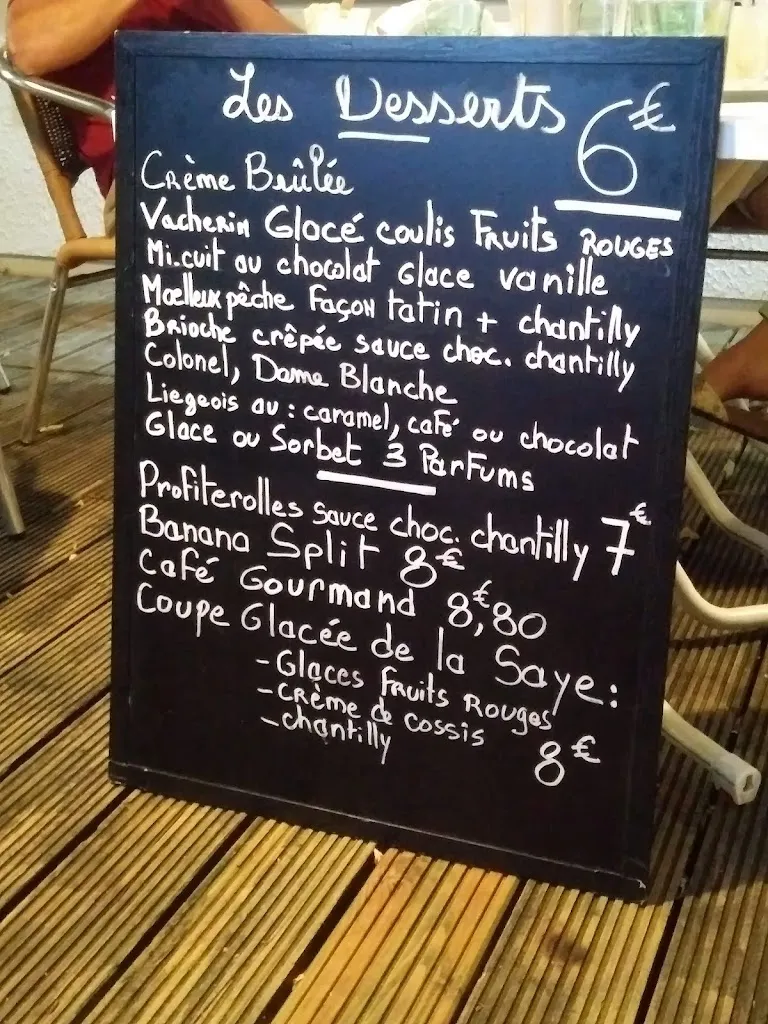 Les Desserts 6€
Crème Brûlée
Vacherin Glacé coulis Fruits Rouges
Mi-cuit au chocolat glace vanille
Moelleux pêche Façon tatin + chantilly
Brioche crêpée sauce choc. chantilly
Colonel, Dame Blanche
Liegeois au : caramel, café ou chocolat
Glace ou Sorbet 3 Parfums
Profiterolles sauce choc. chantilly 7€
Banana Split 8€
Café Gourmand 8,€80
Coupe Glacée de la Saye :
- Glaces fruits Rouges
- crème de cassis
- chantilly 8€